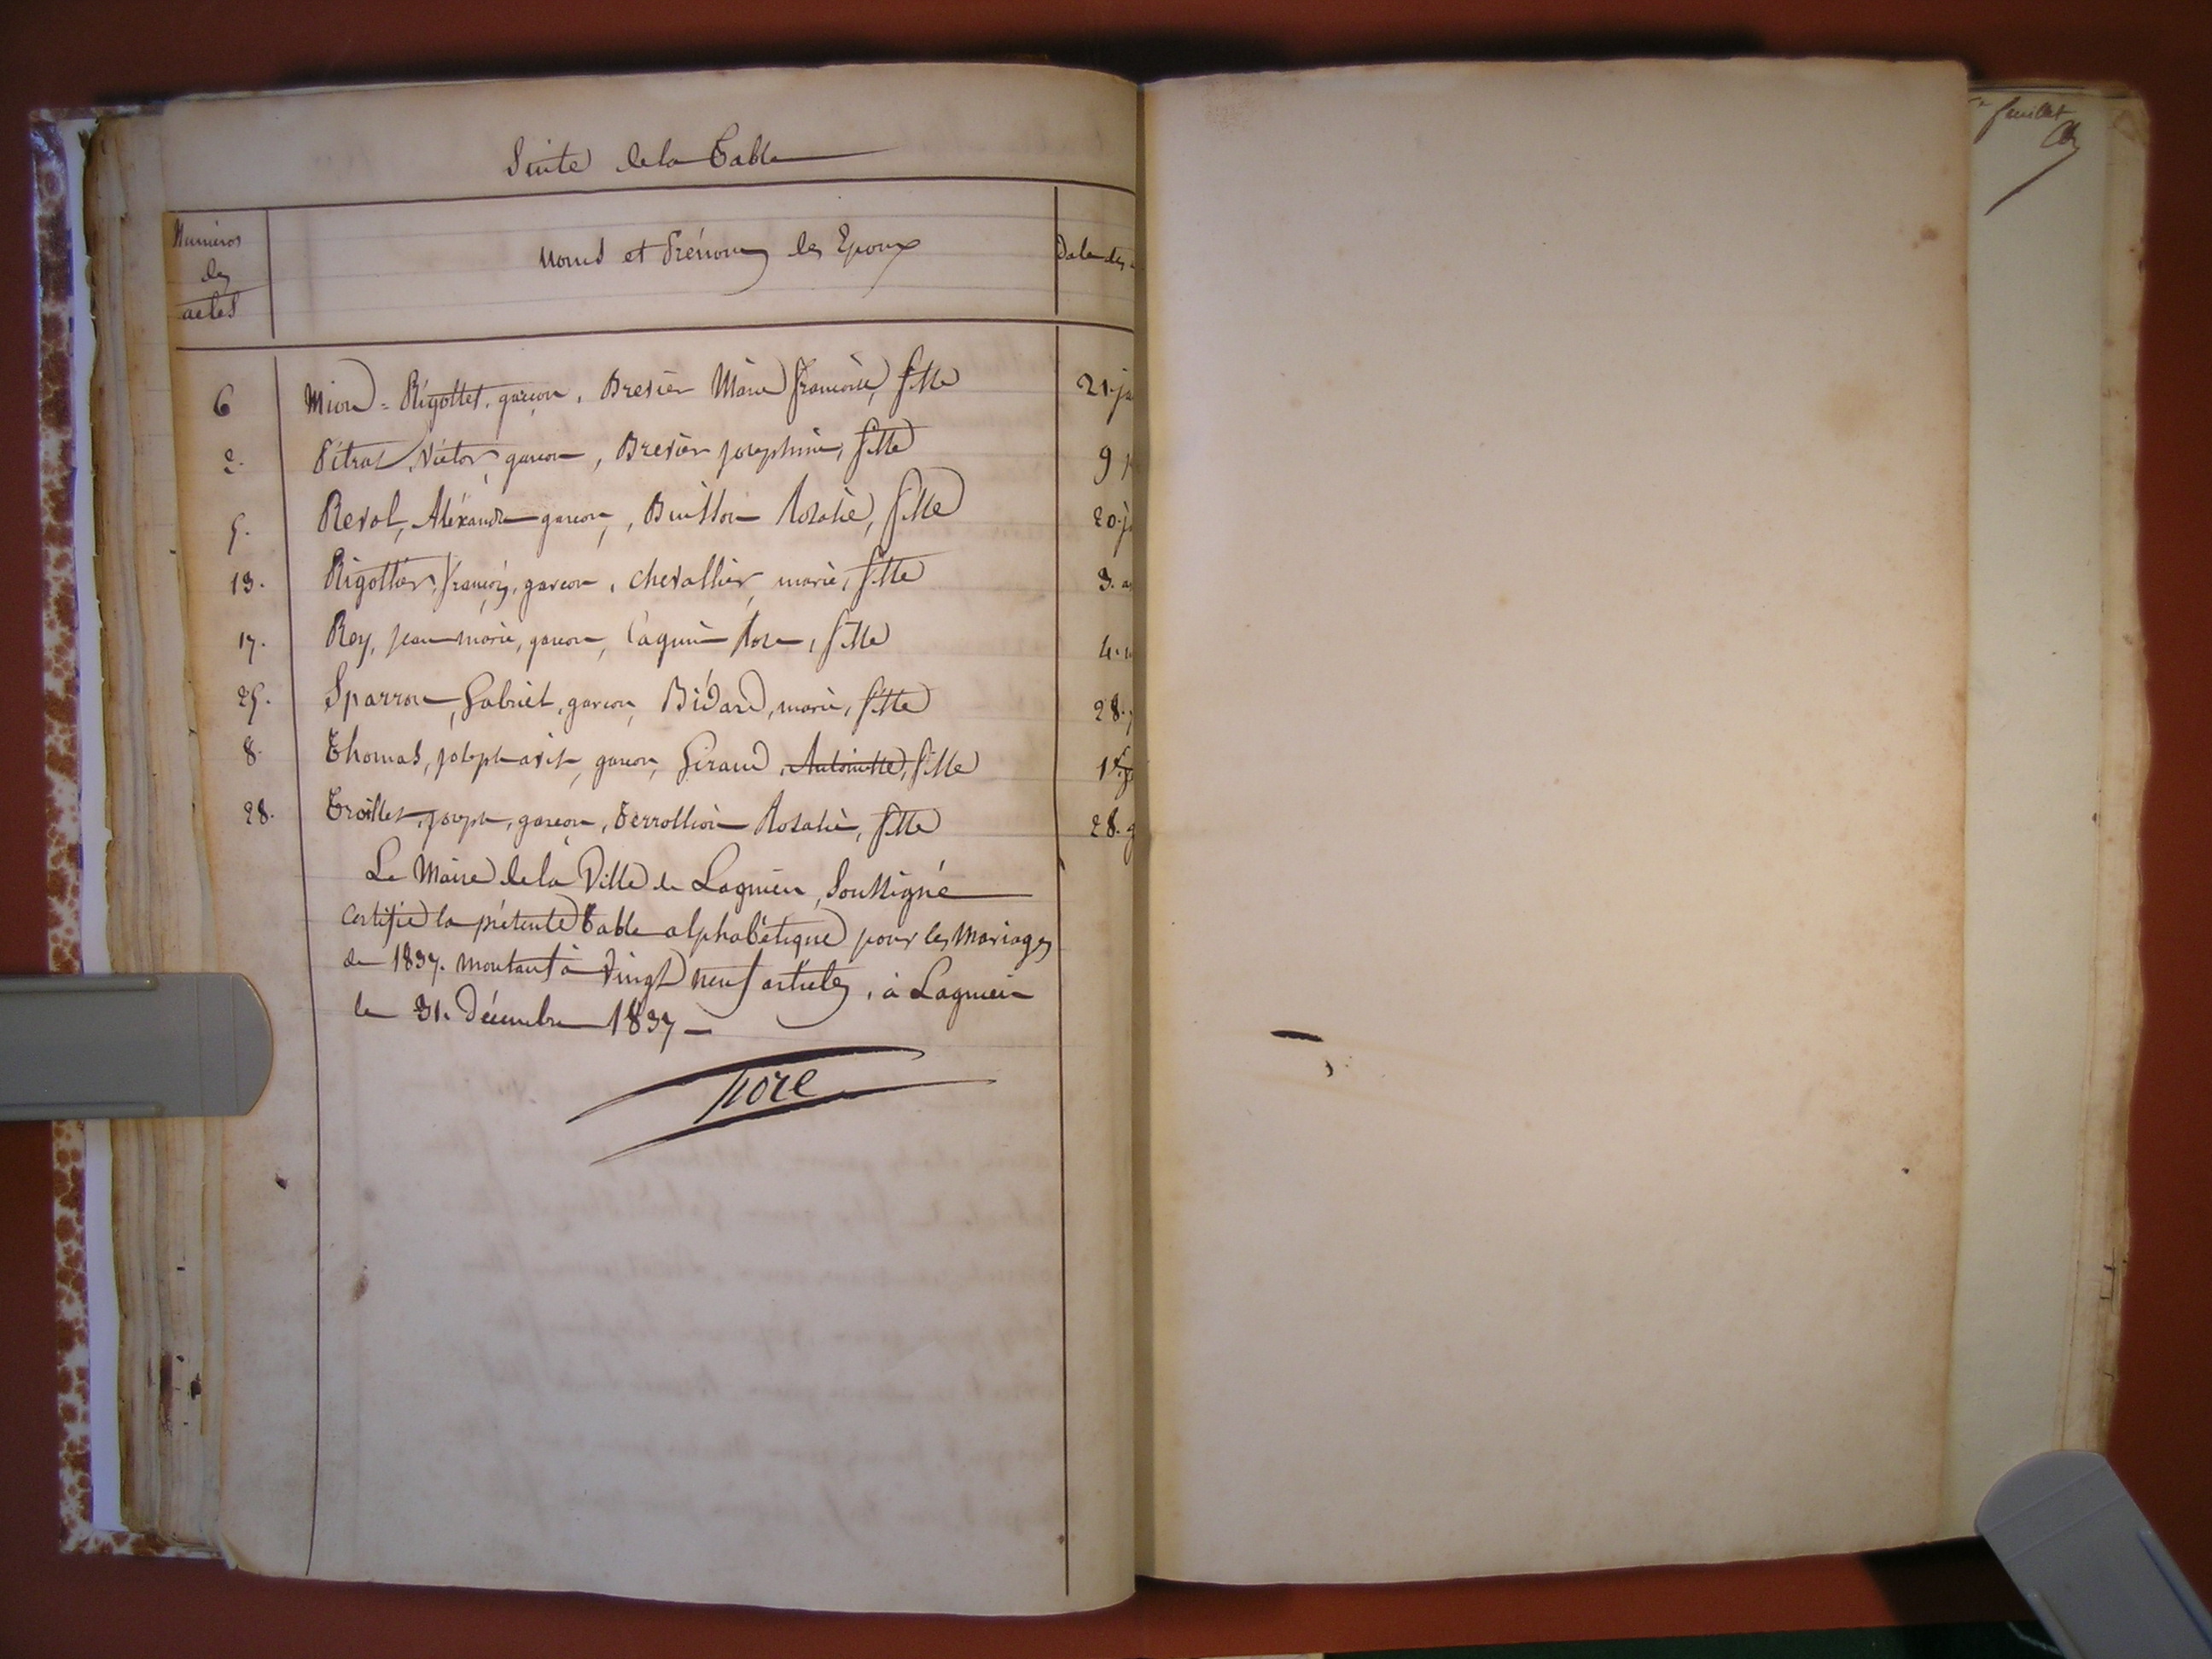 Suite de la Table
Numéros
des
actes
Noms et Prénoms des Epoux
Date des
6 Mion = Rigottet, garçon, Bresier Marie françoise, fille 21. ja
2. Pitrat, Victor, garçon, Bresier josephine, fille 9
5. Revol, Aléxandre garçon, Buisson Rosalie, fille 20. ja
13. Rigottier, françois, garçon, chevallier, marie, fille 3. a
17. Rey, jean-marie, garçon, Caquin Rose, fille 4.
25. Sparron, Gabriel, garçon, Bidard, marie, fille 28.
8. Thomas, joseph avit, garçon, Giraud, Antoinette, fille 1er
28. Troillet, joseph, garçon, Terrollion Rosalie, fille 28.
Le Maire de la Ville de Lagnieu, Soussigné
certifie la présente Table alphabétique pour les Mariages
de 1837. montant à Vingt neuf articles, à Lagnieu
le 31. Décembre 1837 —
feuillet